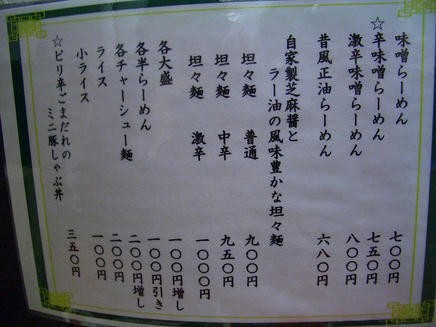 味噌らーめん 七〇〇円
☆辛味噌らーめん 七五〇円
激辛味噌らーめん 八〇〇円
昔風正油らーめん 六八〇円
自家製芝麻醤と
ラー油の風味豊かな坦々麺
坦々麺 普通 九〇〇円
坦々麺 中辛 九五〇円
坦々麺 激辛 一〇〇〇円
各大盛 一〇〇円増し
各半らーめん 一〇〇円引き
各チャーシュー麺 二〇〇円増し
ライス 二〇〇円
小ライス 一〇〇円
☆ピリ辛ごまだれの
ミニ豚しゃぶ丼 三五〇円